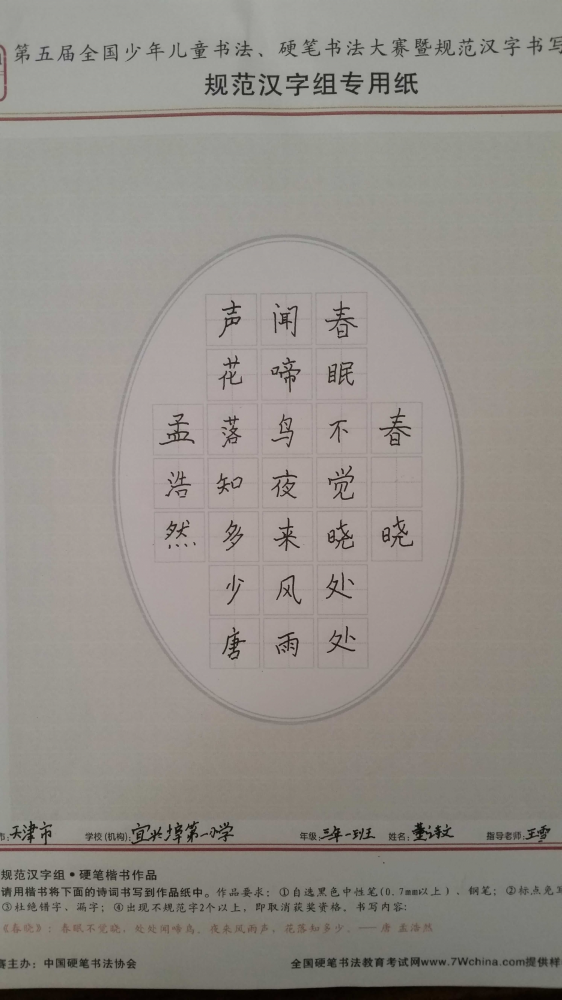 第五届全国少年儿童书法、硬笔书法大赛暨规范汉字书写
规范汉字组专用纸
春晓
春眠不觉晓处处
闻啼鸟夜来风雨
声花落知多少唐
孟浩然
市:天津市 学校(机构):宜兴埠第一小学 年级:三年一班 姓名:董诗文 指导老师:王雪
规范汉字组•硬笔楷书作品
请用楷书将下面的诗词书写到作品纸中。作品要求：①自选黑色中性笔(0.7mm以上)、钢笔；②标点免
③杜绝错字、漏字；④出现不规范字2个以上，即取消获奖资格。书写内容：
《春晓》：春眠不觉晓，处处闻啼鸟，夜来风雨声，花落知多少。——唐 孟浩然
赛主办：中国硬笔书法协会 全国硬笔书法教育考试网www.7Wchina.com提供样